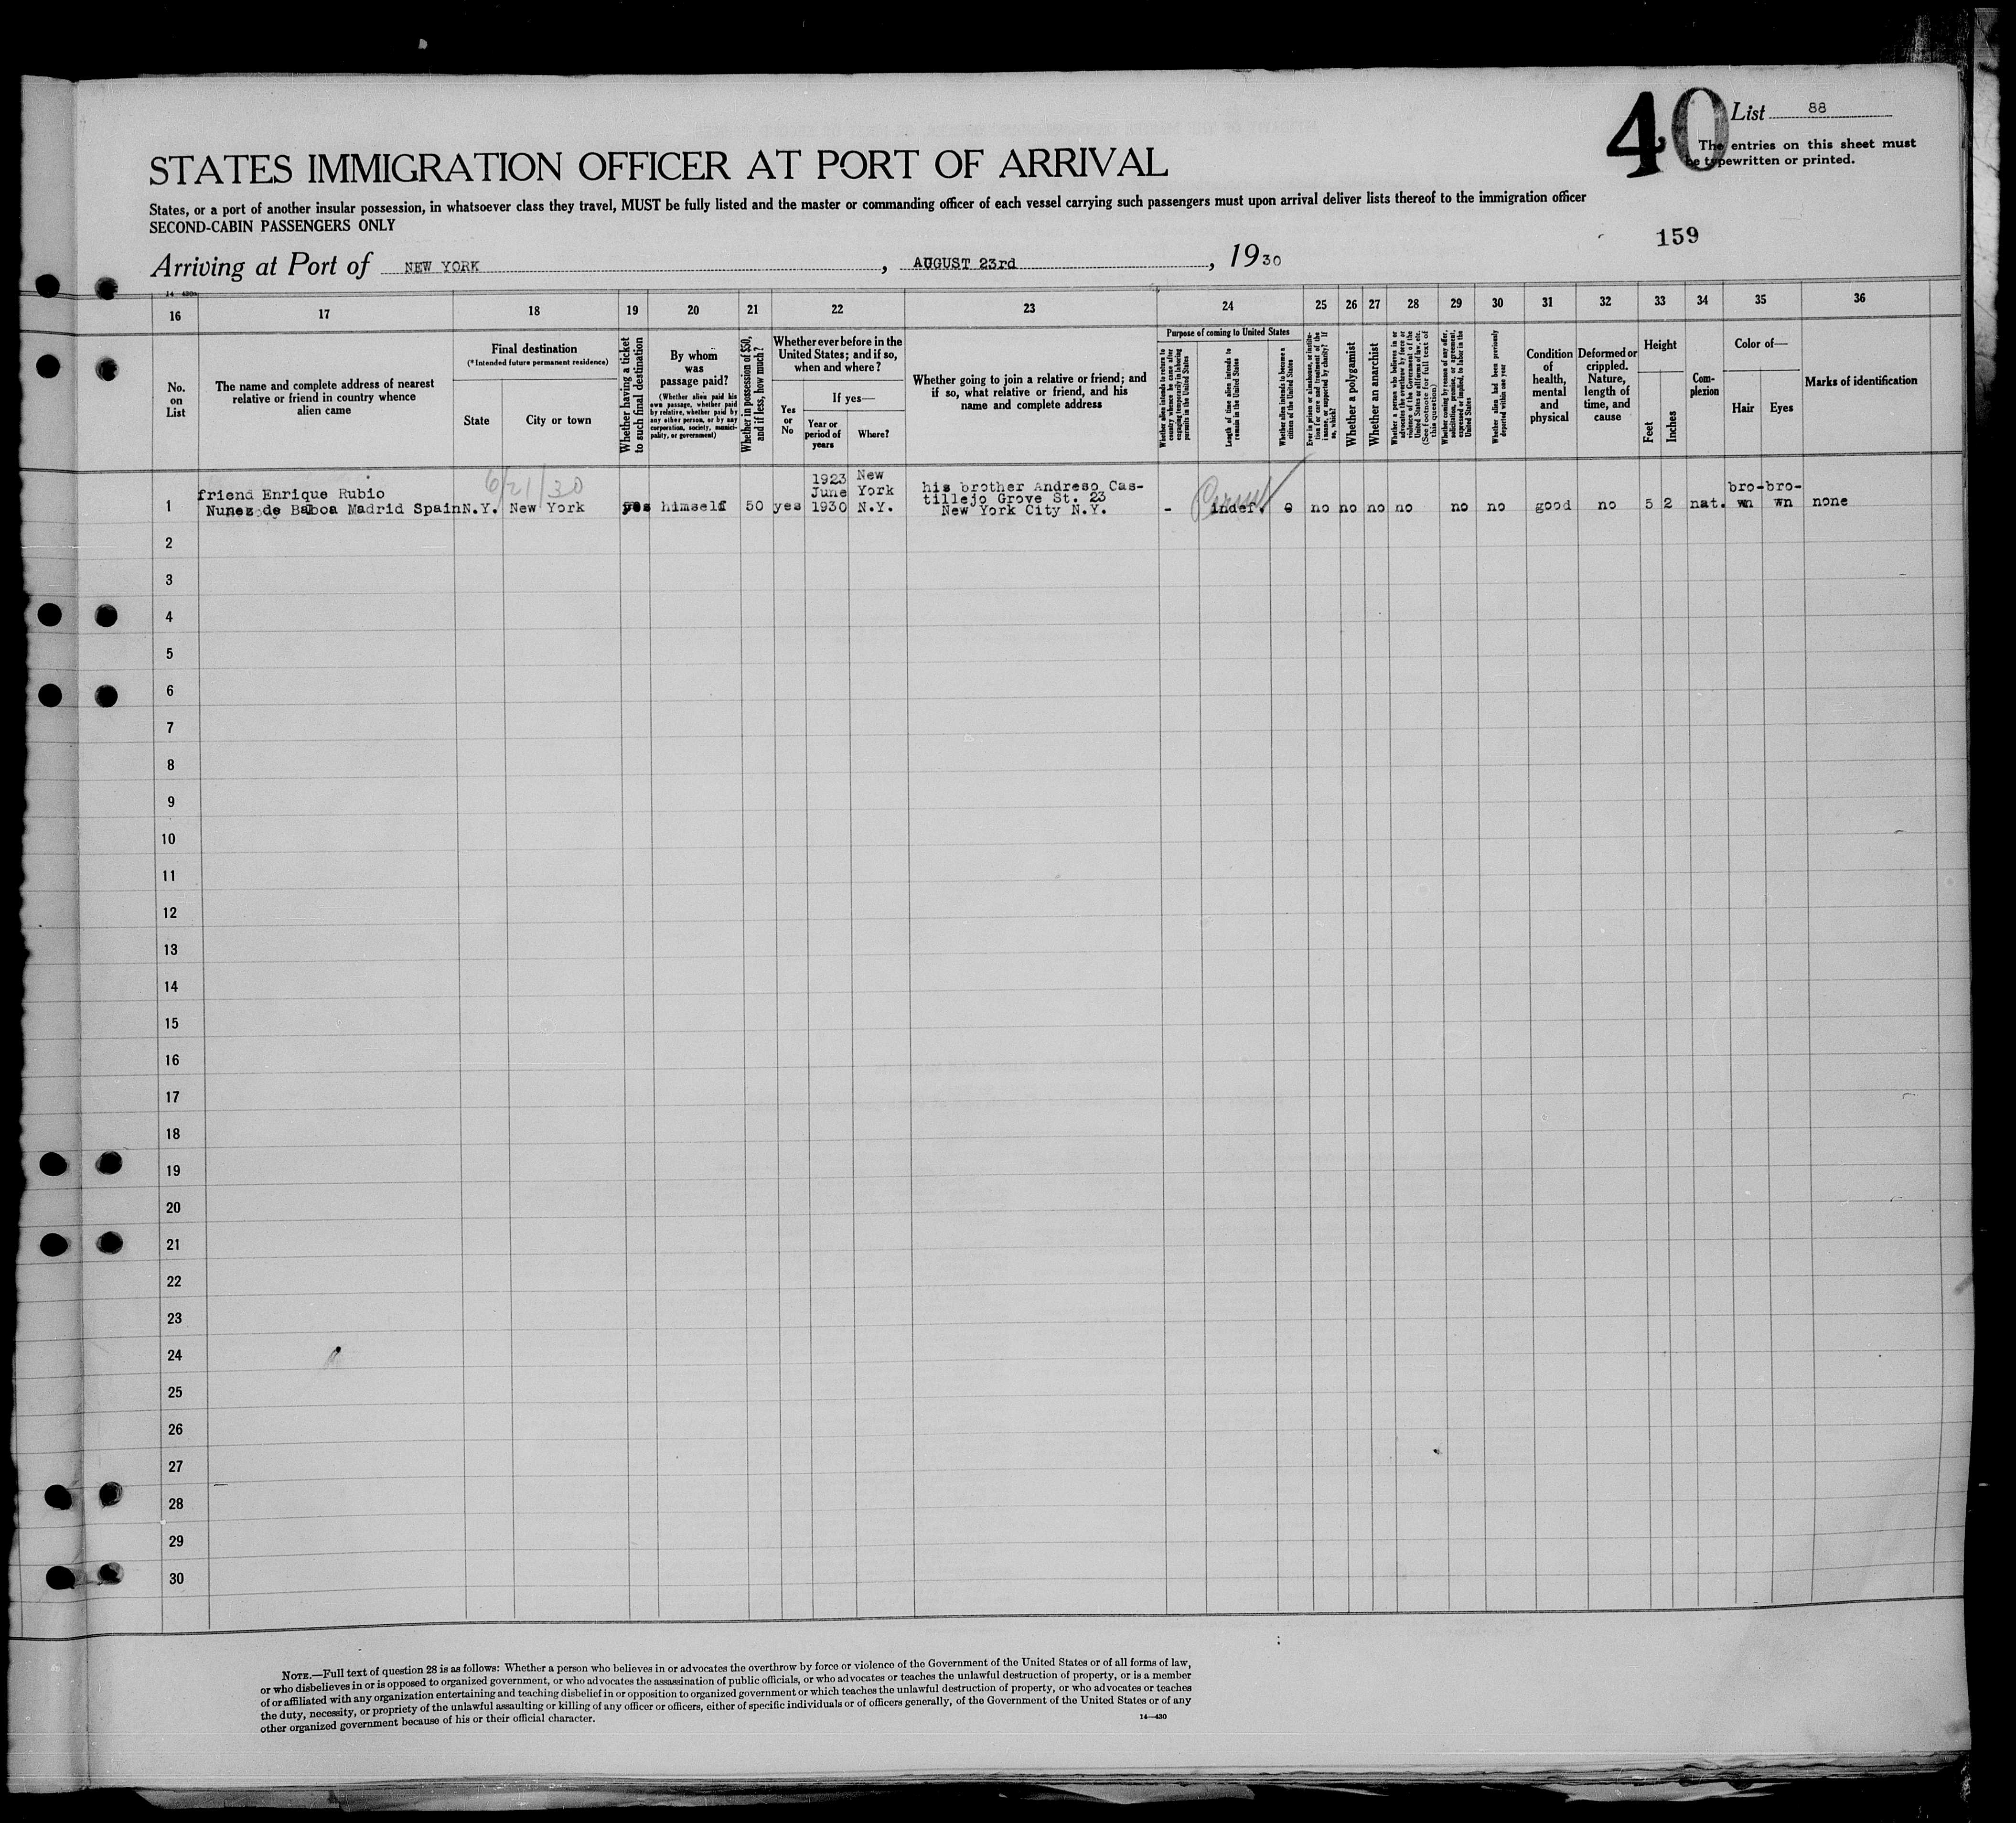 40
List 88
The entries on this sheet must
be typewritten or printed.
STATES IMMIGRATION OFFICER AT PORT OF ARRIVAL
States, or a port of another insular possession, in whatsoever class they travel, MUST be fully listed and the master or commanding officer of each vessel carrying such passengers must upon arrival deliver lists thereof to the immigration officer
SECOND-CABIN PASSENGERS ONLY
159
Arriving at Port of NEW YORK, AUGUST 23rd, 1930
14—430a
16 17 18 19 20 21 22 23 24 25 26 27 28 29 30 31 32 33 34 35 36
No.
on
List
The name and complete address of nearest
relative or friend in country whence
alien came
Final destination
(*Intended future permanent residence)
State
City or town
Whether having a ticket
to such final destination
By whom
was
passage paid?
(Whether alien paid his
own passage, whether paid
by relative, whether paid by
any other person, or by any
corporation, society, munici-
pality, or government)
Whether in possession of $50,
and if less, how much?
Whether ever before in the
United States; and if so,
when and where?
Yes
or
No
If yes—
Year or
period of
years
Where?
Whether going to join a relative or friend; and
if so, what relative or friend, and his
name and complete address
Purpose of coming to United States
Whether alien intends to return to
country whence he came after
engaging temporarily in laboring
pursuits in the United States
Length of time alien intends to
remain in the United States
Whether alien intends to become a
citizen of the United States
Ever in prison or almshouse, or institu-
tion for care and treatment of the
insane, or supported by charity? If
so, which?
Whether a polygamist
Whether an anarchist
Whether a person who believes in or
advocates the overthrow by force or
violence of the Government of the
United States or all forms of law, etc.
(See footnote for full text of
this question)
Whether coming by reason of any offer,
solicitation, promise, or agreement,
expressed or implied, to labor in the
United States
Whether alien had been previously
deported within one year
Condition
of
health,
mental
and
physical
Deformed or
crippled.
Nature,
length of
time, and
cause
Height
Feet
Inches
Com-
plexion
Color of—
Hair
Eyes
Marks of identification
6/21/30
1 friend Enrique Rubio
Nunez de Baboa Madrid Spain N.Y. New York yes himself 50 yes
1923
June
1930
New
York
N.Y.
his brother Andreso Cas-
tillejo Grove St. 23
New York City N.Y.
- indef. no no no no no no good no 5 2 nat.
bro-
wn
bro-
wn
none
2
3
4
5
6
7
8
9
10
11
12
13
14
15
16
17
18
19
20
21
22
23
24
25
26
27
28
29
30
NOTE.—Full text of question 28 is as follows: Whether a person who believes in or advocates the overthrow by force or violence of the Government of the United States or of all forms of law,
or who disbelieves in or is opposed to organized government, or who advocates the assassination of public officials, or who advocates or teaches the unlawful destruction of property, or is a member
of or affiliated with any organization entertaining and teaching disbelief in or opposition to organized government or which teaches the unlawful destruction of property, or who advocates or teaches
the duty, necessity, or propriety of the unlawful assaulting or killing of any officer or officers, either of specific individuals or of officers generally, of the Government of the United States or of any
other organized government because of his or their official character.
14—430